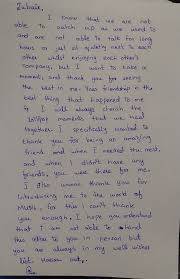 Zubair,
I know that we are not
able to catch up as we used to
and are not able to talk for long
hours or just sit quietly next to each
other whilst enjoying each other's
company, but I want to take a
moment, and thank you for seeing
the best in me. Your friendship is the
best thing that happened to me
I will always cherish the
moments that we had
together. I specifically wanted to
thank you for being an amazing
friend and when I needed the most,
and when I didn't have any
friends, you were there for me.
I also wanna thank you for
introducing me to the world of
Music, for this I can't thank
you enough. I hope you understand
that I am not able to hand
this over to you in person but
you are always in my well wishes
list.